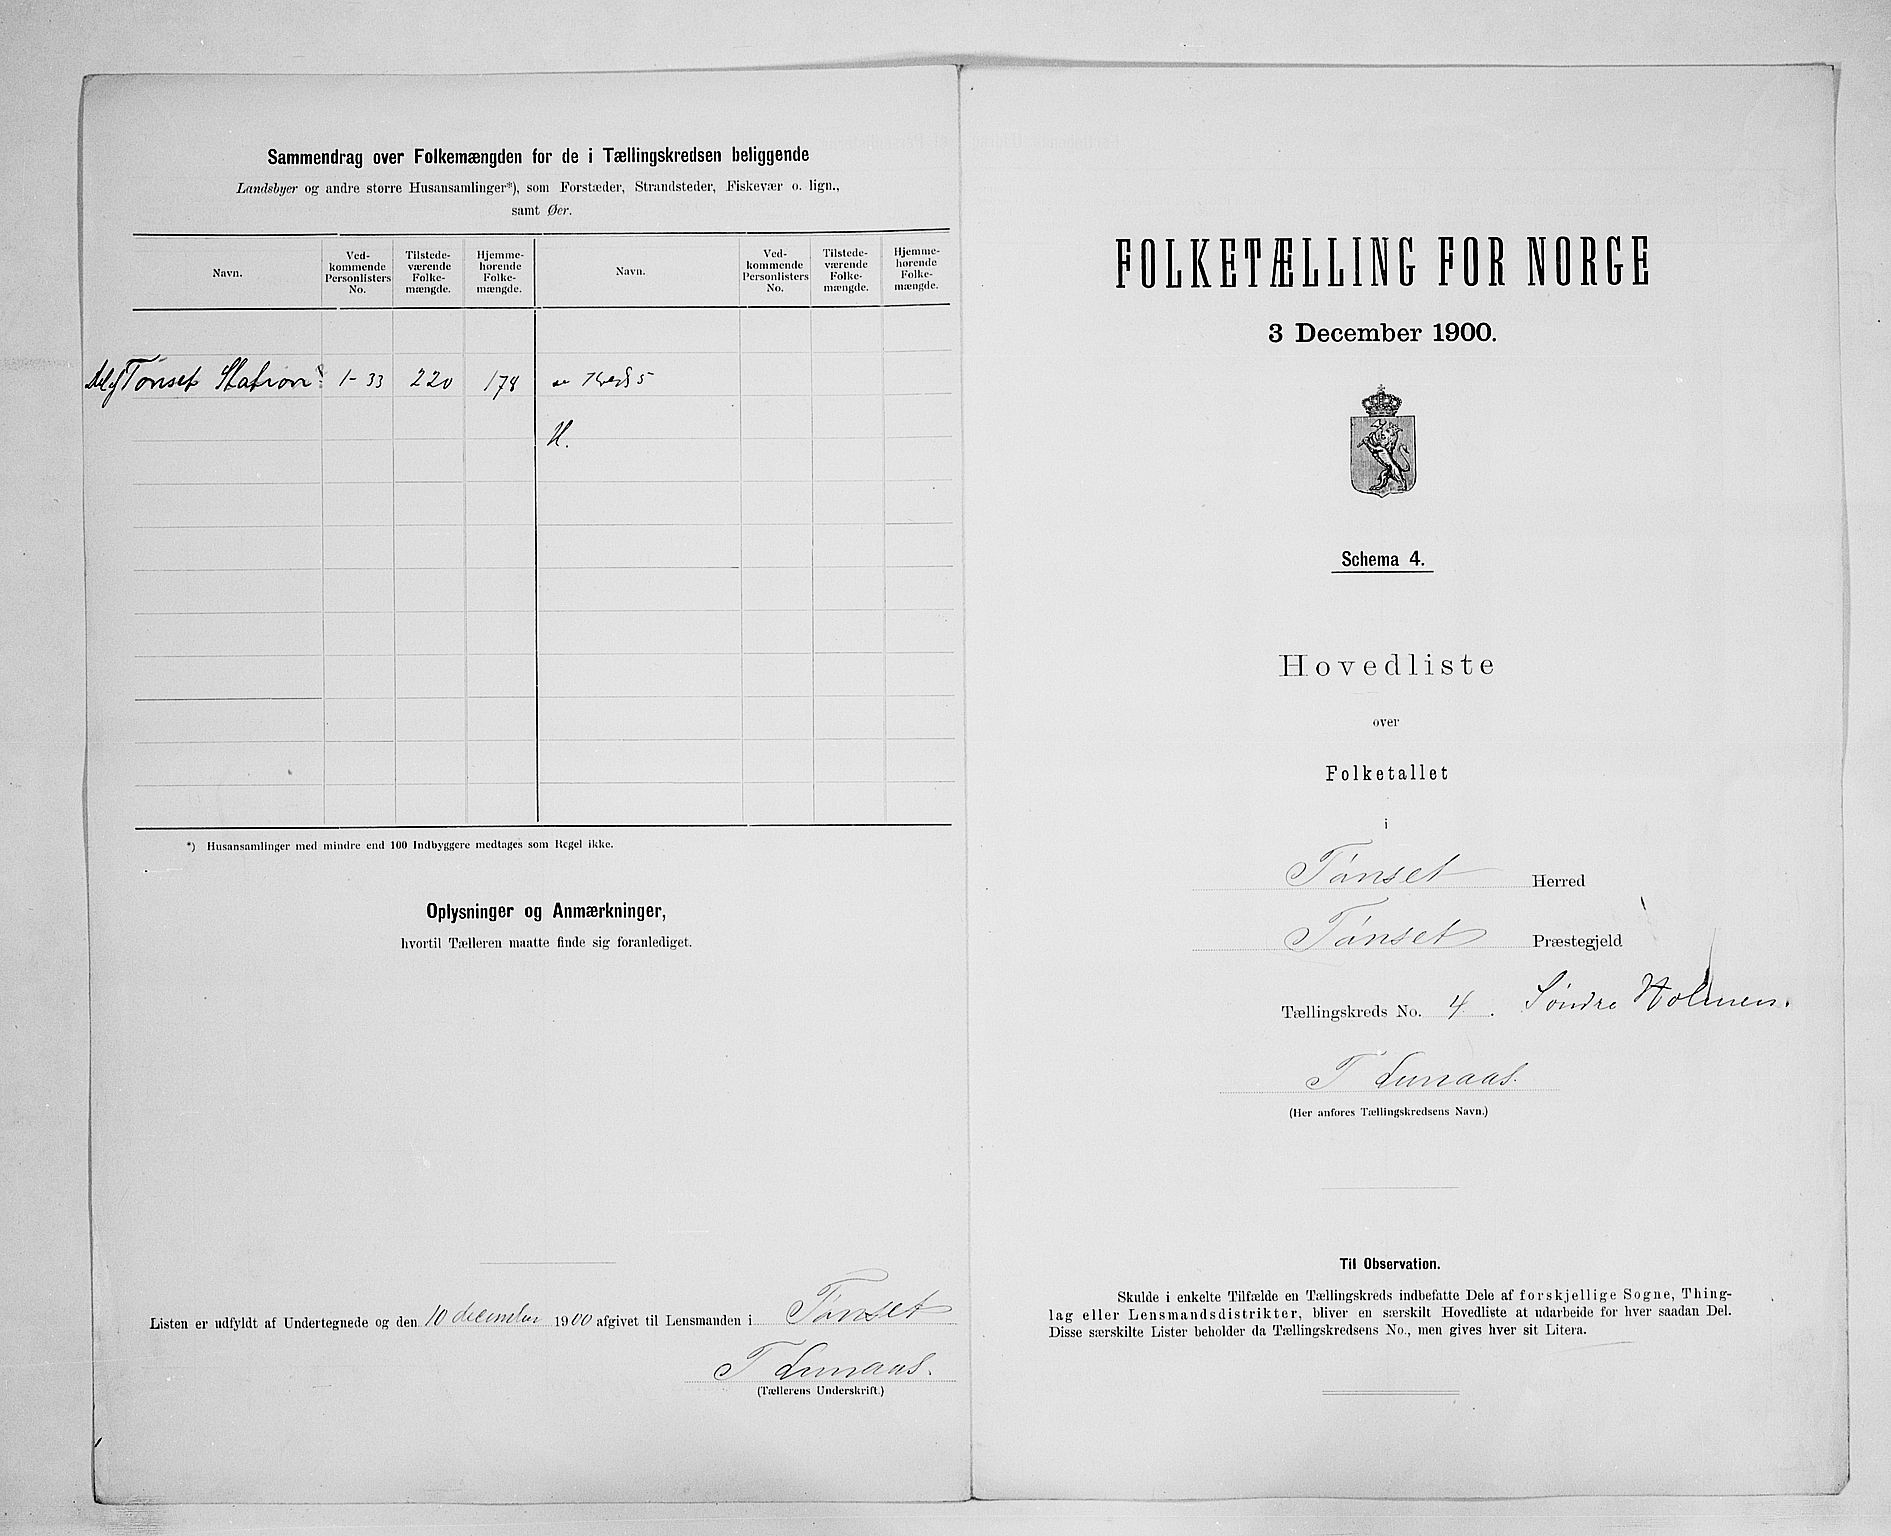 Sammendrag over Folkemængden for de i Tællingskredsen beliggende
Landsbyer og andre større Husansamlinger*), som Forstæder, Strandsteder, Fiskevær o. lign.,
samt Øer.
Navn.
Ved-
kommende
Personlisters
No.
Tilstede-
værende
Folke-
mængde.
Hjemme-
hørende
Folke-
mængde.
Navn.
Ved-
kommende
Personlisters
No.
Tilstede-
værende
Folke-
mængde.
Hjemme-
hørende
Folke-
mængde.
Del af Tønset Station 1-33 220 178 Kreds 5
H.
*) Husansamlinger med mindre end 100 Indbyggere medtages som Regel ikke.
Oplysninger og Anmærkninger,
hvortil Tælleren maatte finde sig foranlediget.
Listen er udfyldt af Undertegnede og den 10 december 1900 afgivet til Lensmanden i Tønset
T
(Tællerens Underskrift.)
FOLKETÆLLING FOR NORGE
3 December 1900.
Schema 4.
Hovedliste
over
Folketallet
i
Tønset Herred
Tønset Præstegjeld
Tællingskreds No. 4. Søndre Holmen.
T
(Her anføres Tællingskredsens Navn.)
Til Observation.
Skulde i enkelte Tilfælde en Tællingskreds indbefatte Dele af forskjellige Sogne, Thing-
lag eller Lensmandsdistrikter, bliver en særskilt Hovedliste at udarbeide for hver saadan Del.
Disse særskilte Lister beholder da Tællingskredsens No., men gives hver sit Litera.